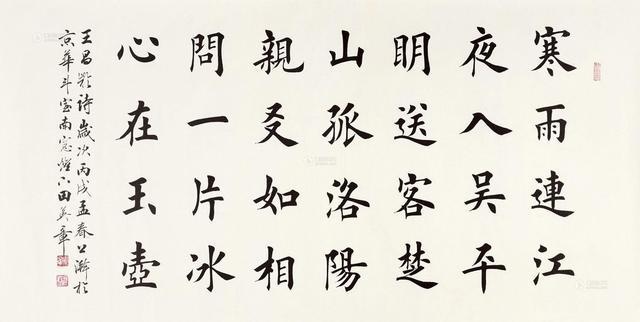 寒雨連江
夜入吳平
明送客楚
山孤洛陽
親友如相
問一片冰
心在玉壺
王昌齡詩歲次丙戌孟春上澣於
京華斗室南窗燈下田英章